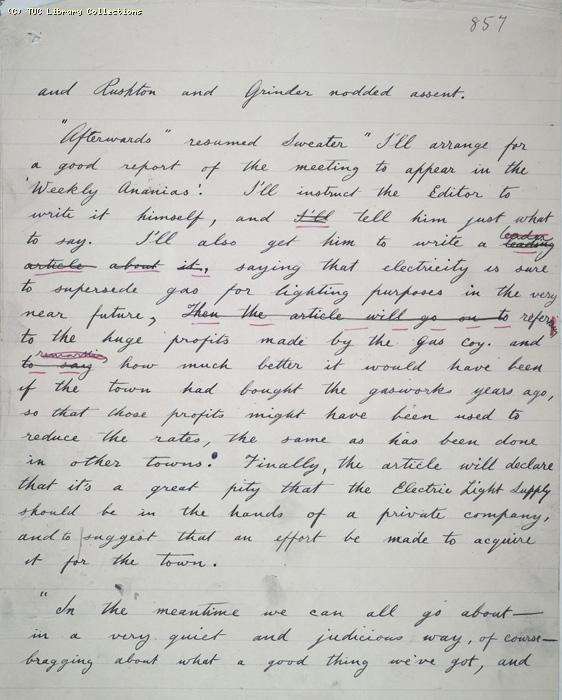 (C) TUC Library Collections
857
and Rushton and Grinder nodded assent.
"Afterwards" resumed Sweater "I'll arrange for
a good report of the meeting to appear in the
'Weekly Ananias'. I'll instruct the Editor to
write it himself, and I'll tell him just what
to say. I'll also get him to write a leading
article about it, saying that electricity is sure
to supersede gas for lighting purposes in the very
near future, Then the article will go on to refer
to the huge profits made by the Gas Coy. and
remarking
to say how much better it would have been
if the town had bought the gasworks years ago,
so that those profits might have been used to
reduce the rates, the same as has been done
in other towns. Finally, the article will declare
that it's a great pity that the Electric Light Supply
should be in the hands of a private company,
and to suggest that an effort be made to acquire
it for the town.
"In the meantime we can all go about—
in a very quiet and judicious way, of course—
bragging about what a good thing we've got, and